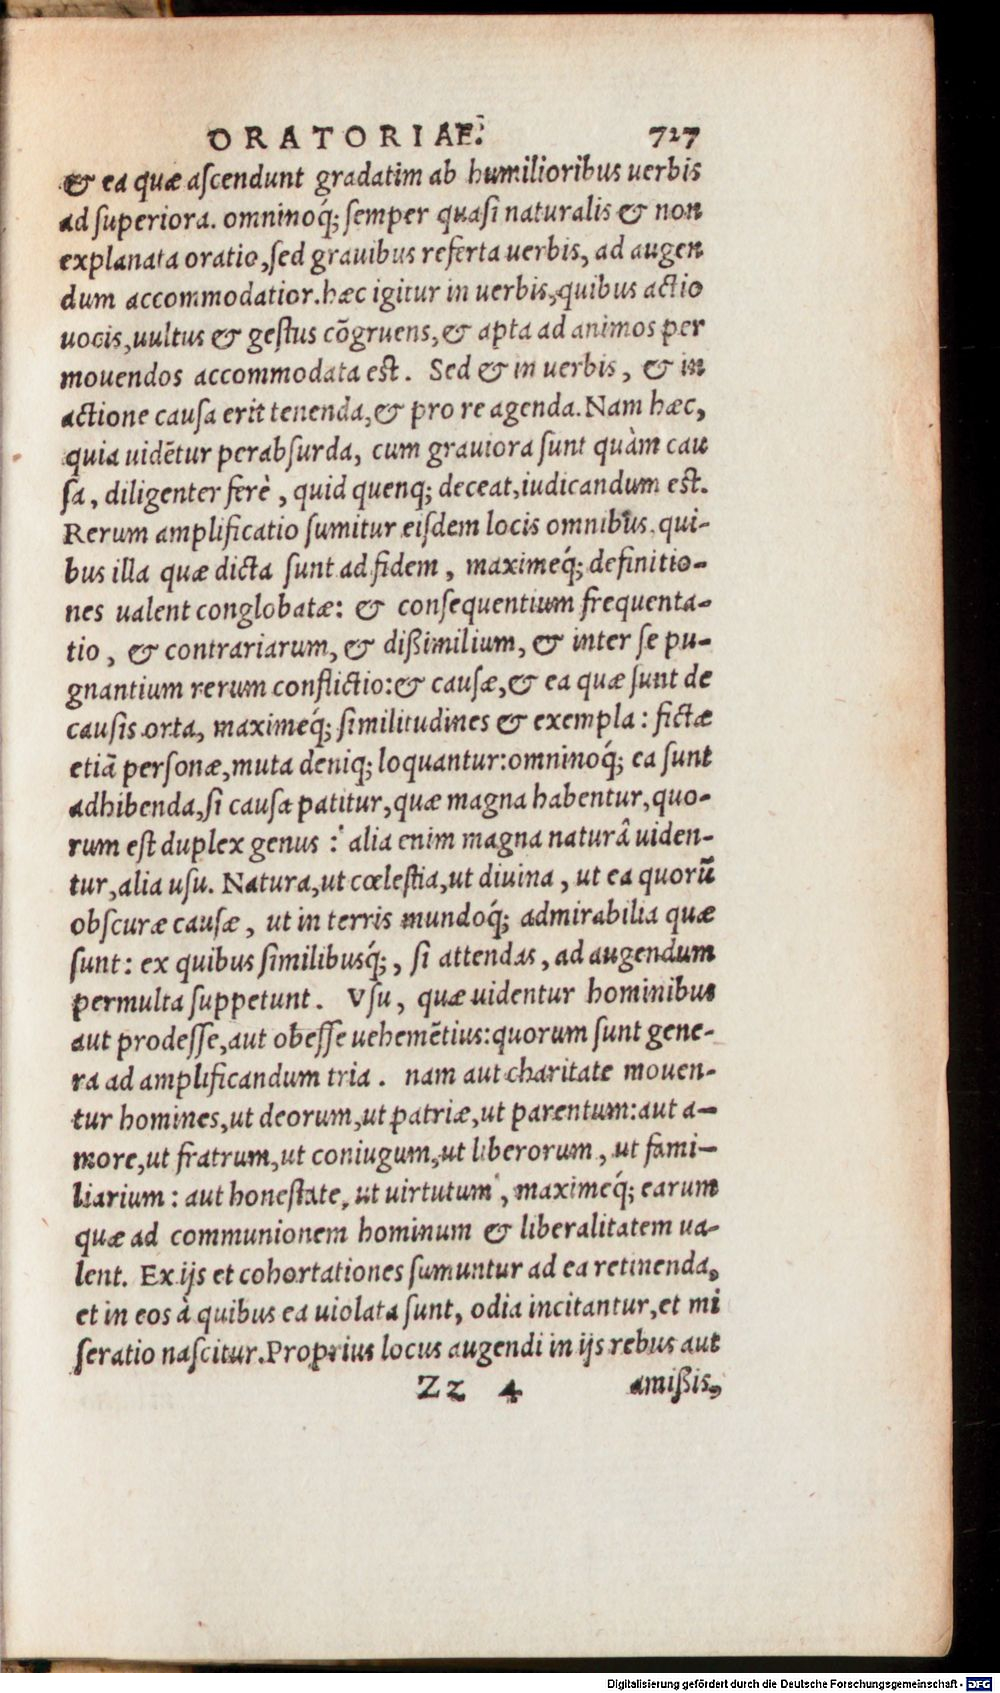 ORATORIAE. 727
& ea quæ ascendunt gradatim ab humilioribus uerbis
ad superiora. omninoq́; semper quasi naturalis & non
explanata oratio, sed grauibus referta uerbis, ad augen
dum accommodatior. hæc igitur in uerbis, quibus actio
uocis, uultus & gestus cõgruens, & apta ad animos per
mouendos accommodata est. Sed & in uerbis, & in
actione causa erit tenenda, & pro re agenda. Nam hæc,
quia uidẽtur perabsurda, cum grauiora sunt quàm cau
sa, diligenter ferè, quid quenq; deceat, iudicandum est.
Rerum amplificatio sumitur eisdem locis omnibus, qui-
bus illa quæ dicta sunt ad fidem, maximeq́; definitio-
nes ualent conglobatæ: & consequentium frequenta-
tio, & contrariarum, & dißimilium, & inter se pu-
gnantium rerum conflictio: & causæ, & ea quæ sunt de
causis orta, maximeq́; similitudines & exempla: fictæ
etiã personæ, muta deniq; loquantur: omninoq́; ea sunt
adhibenda, si causa patitur, quæ magna habentur, quo-
rum est duplex genus: alia enim magna naturâ uiden-
tur, alia usu. Natura, ut cœlestia, ut diuina, ut ea quorũ
obscuræ causæ, ut in terris mundoq́; admirabilia quæ
sunt: ex quibus similibusq́;, si attendas, ad augendum
permulta suppetunt. Vsu, quæ uidentur hominibus
aut prodesse, aut obesse uehemẽtius: quorum sunt gene-
ra ad amplificandum tria. nam aut charitate mouen-
tur homines, ut deorum, ut patriæ, ut parentum: aut a-
more, ut fratrum, ut coniugum, ut liberorum, ut fami-
liarium: aut honestate, ut uirtutum, maximeq́; earum
quæ ad communionem hominum & liberalitatem ua-
lent. Ex ijs et cohortationes sumuntur ad ea retinenda,
et in eos à quibus ea uiolata sunt, odia incitantur, et mi
seratio nascitur. Proprius locus augendi in ijs rebus aut
Zz 4 amißis,
Digitalisierung gefördert durch die Deutsche Forschungsgemeinschaft - DFG